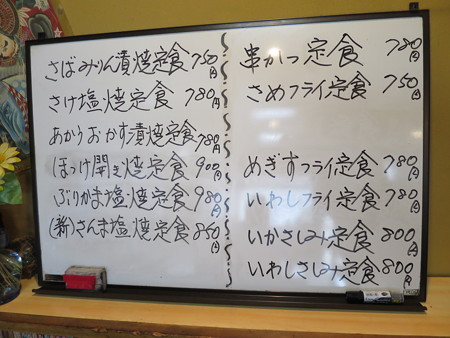 さばみりん漬焼定食 750円
さけ塩焼定食 780円
あかうおかす漬焼定食 780円
ほっけ開き焼定食 900円
ぶりかま塩焼定食 980円
(新)さんま塩焼定食 850円
串かつ定食 780円
さめフライ定食 750円
めぎすフライ定食 780円
いわしフライ定食 780円
いかさしみ定食 800円
いわしさしみ定食 800円